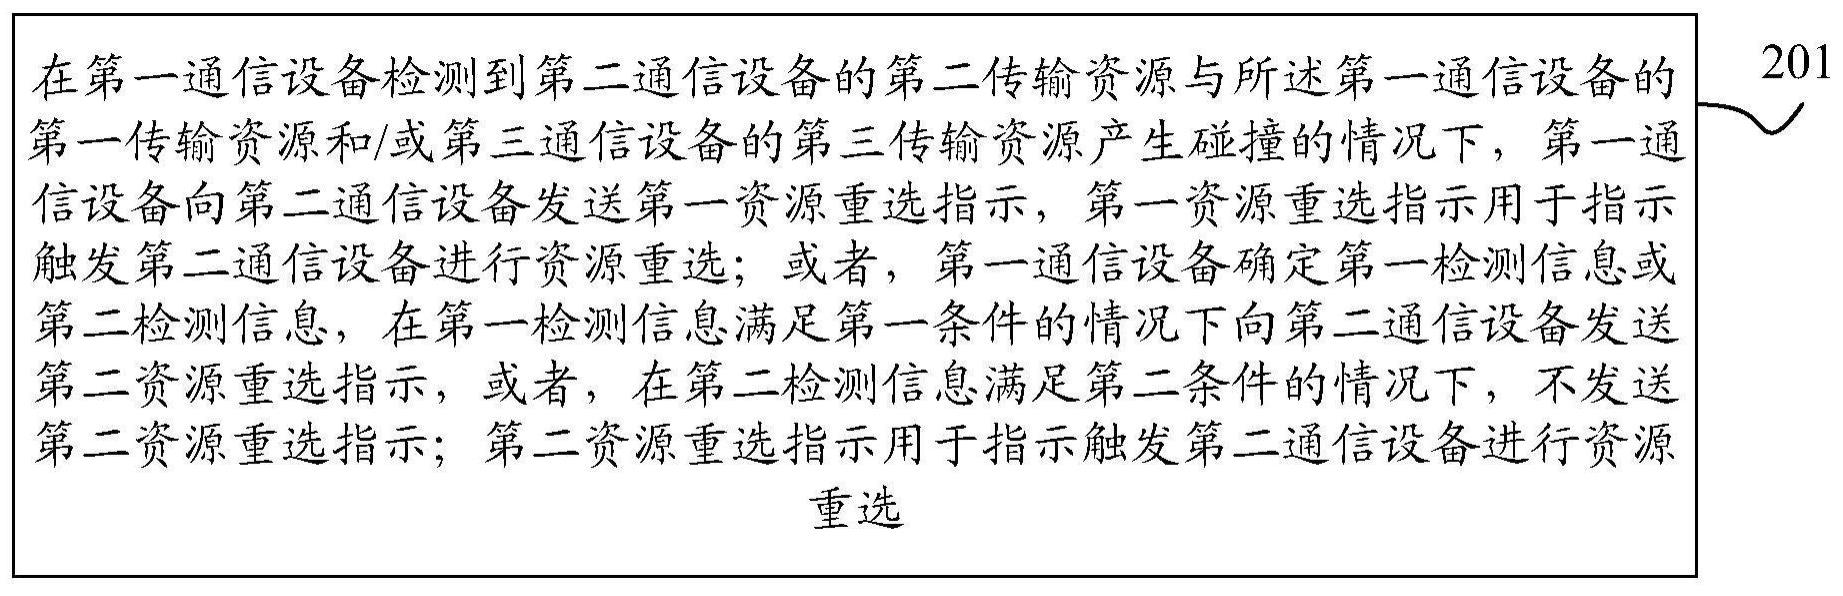 在第一通信设备检测到第二通信设备的第二传输资源与所述第一通信设备的
第一传输资源和/或第三通信设备的第三传输资源产生碰撞的情况下，第一通
信设备向第二通信设备发送第一资源重选指示，第一资源重选指示用于指示
触发第二通信设备进行资源重选；或者，第一通信设备确定第一检测信息或
第二检测信息，在第一检测信息满足第一条件的情况下向第二通信设备发送
第二资源重选指示，或者，在第二检测信息满足第二条件的情况下，不发送
第二资源重选指示；第二资源重选指示用于指示触发第二通信设备进行资源
重选
201